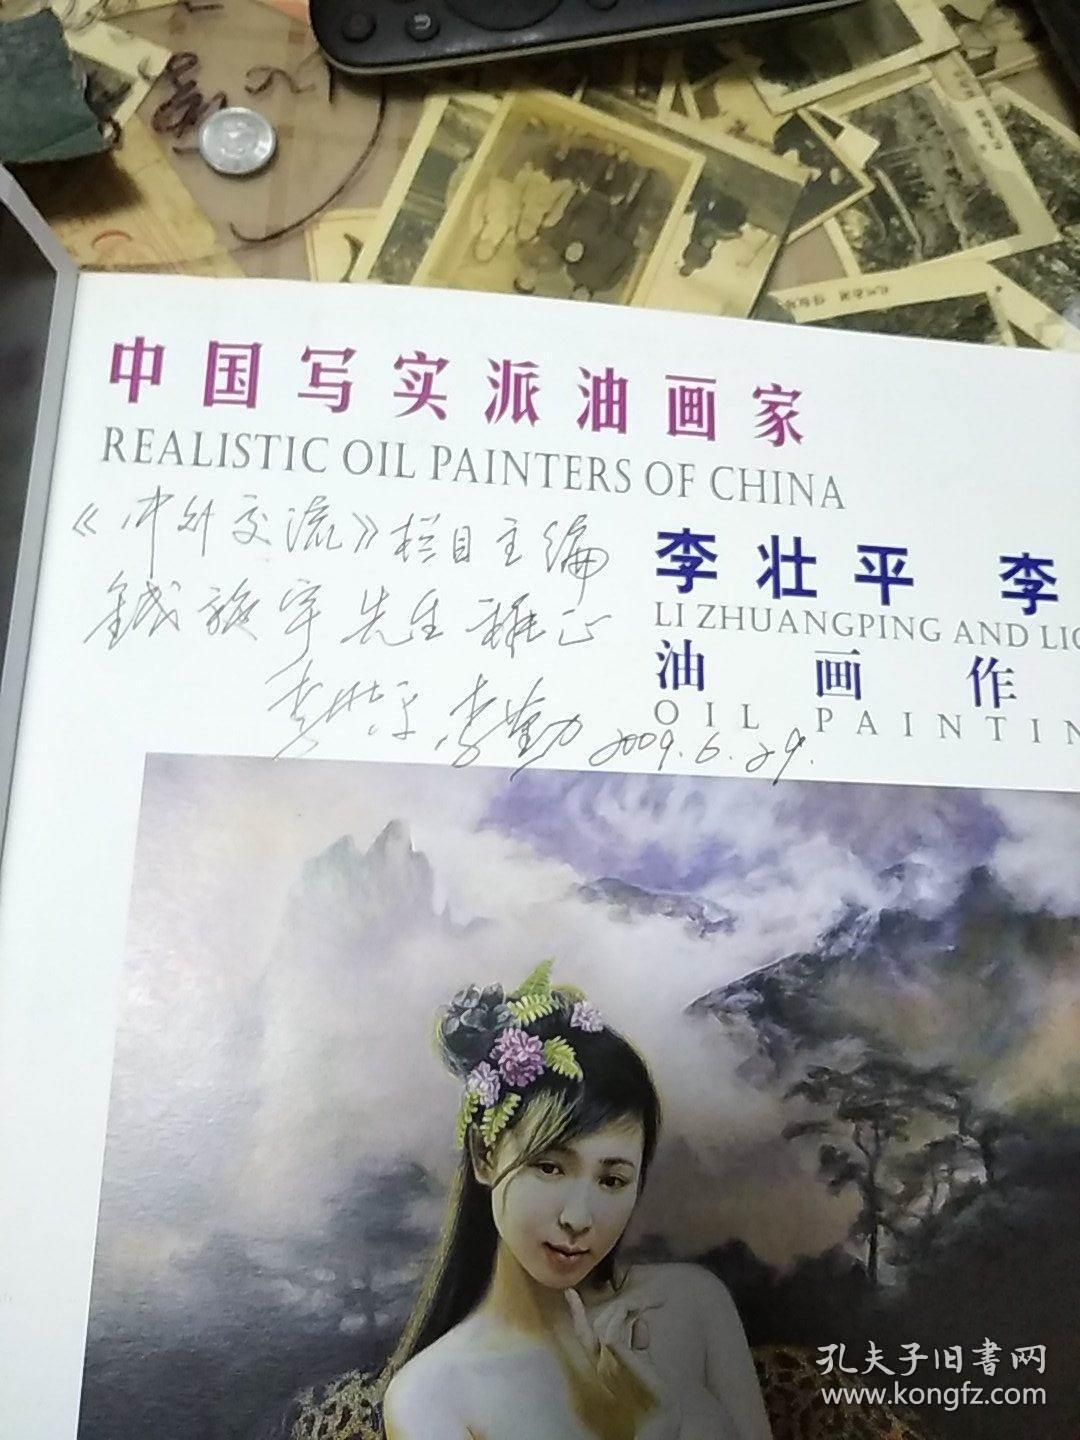 中国写实派油画家
REALISTIC OIL PAINTERS OF CHINA
《中外交流》栏目主编
先生雅正
李壮平 李勤 2009.6.29.
李壮平 李
LI ZHUANGPING AND LI
油画作
OIL PAINTIN
孔夫子旧書网
www.kongfz.com